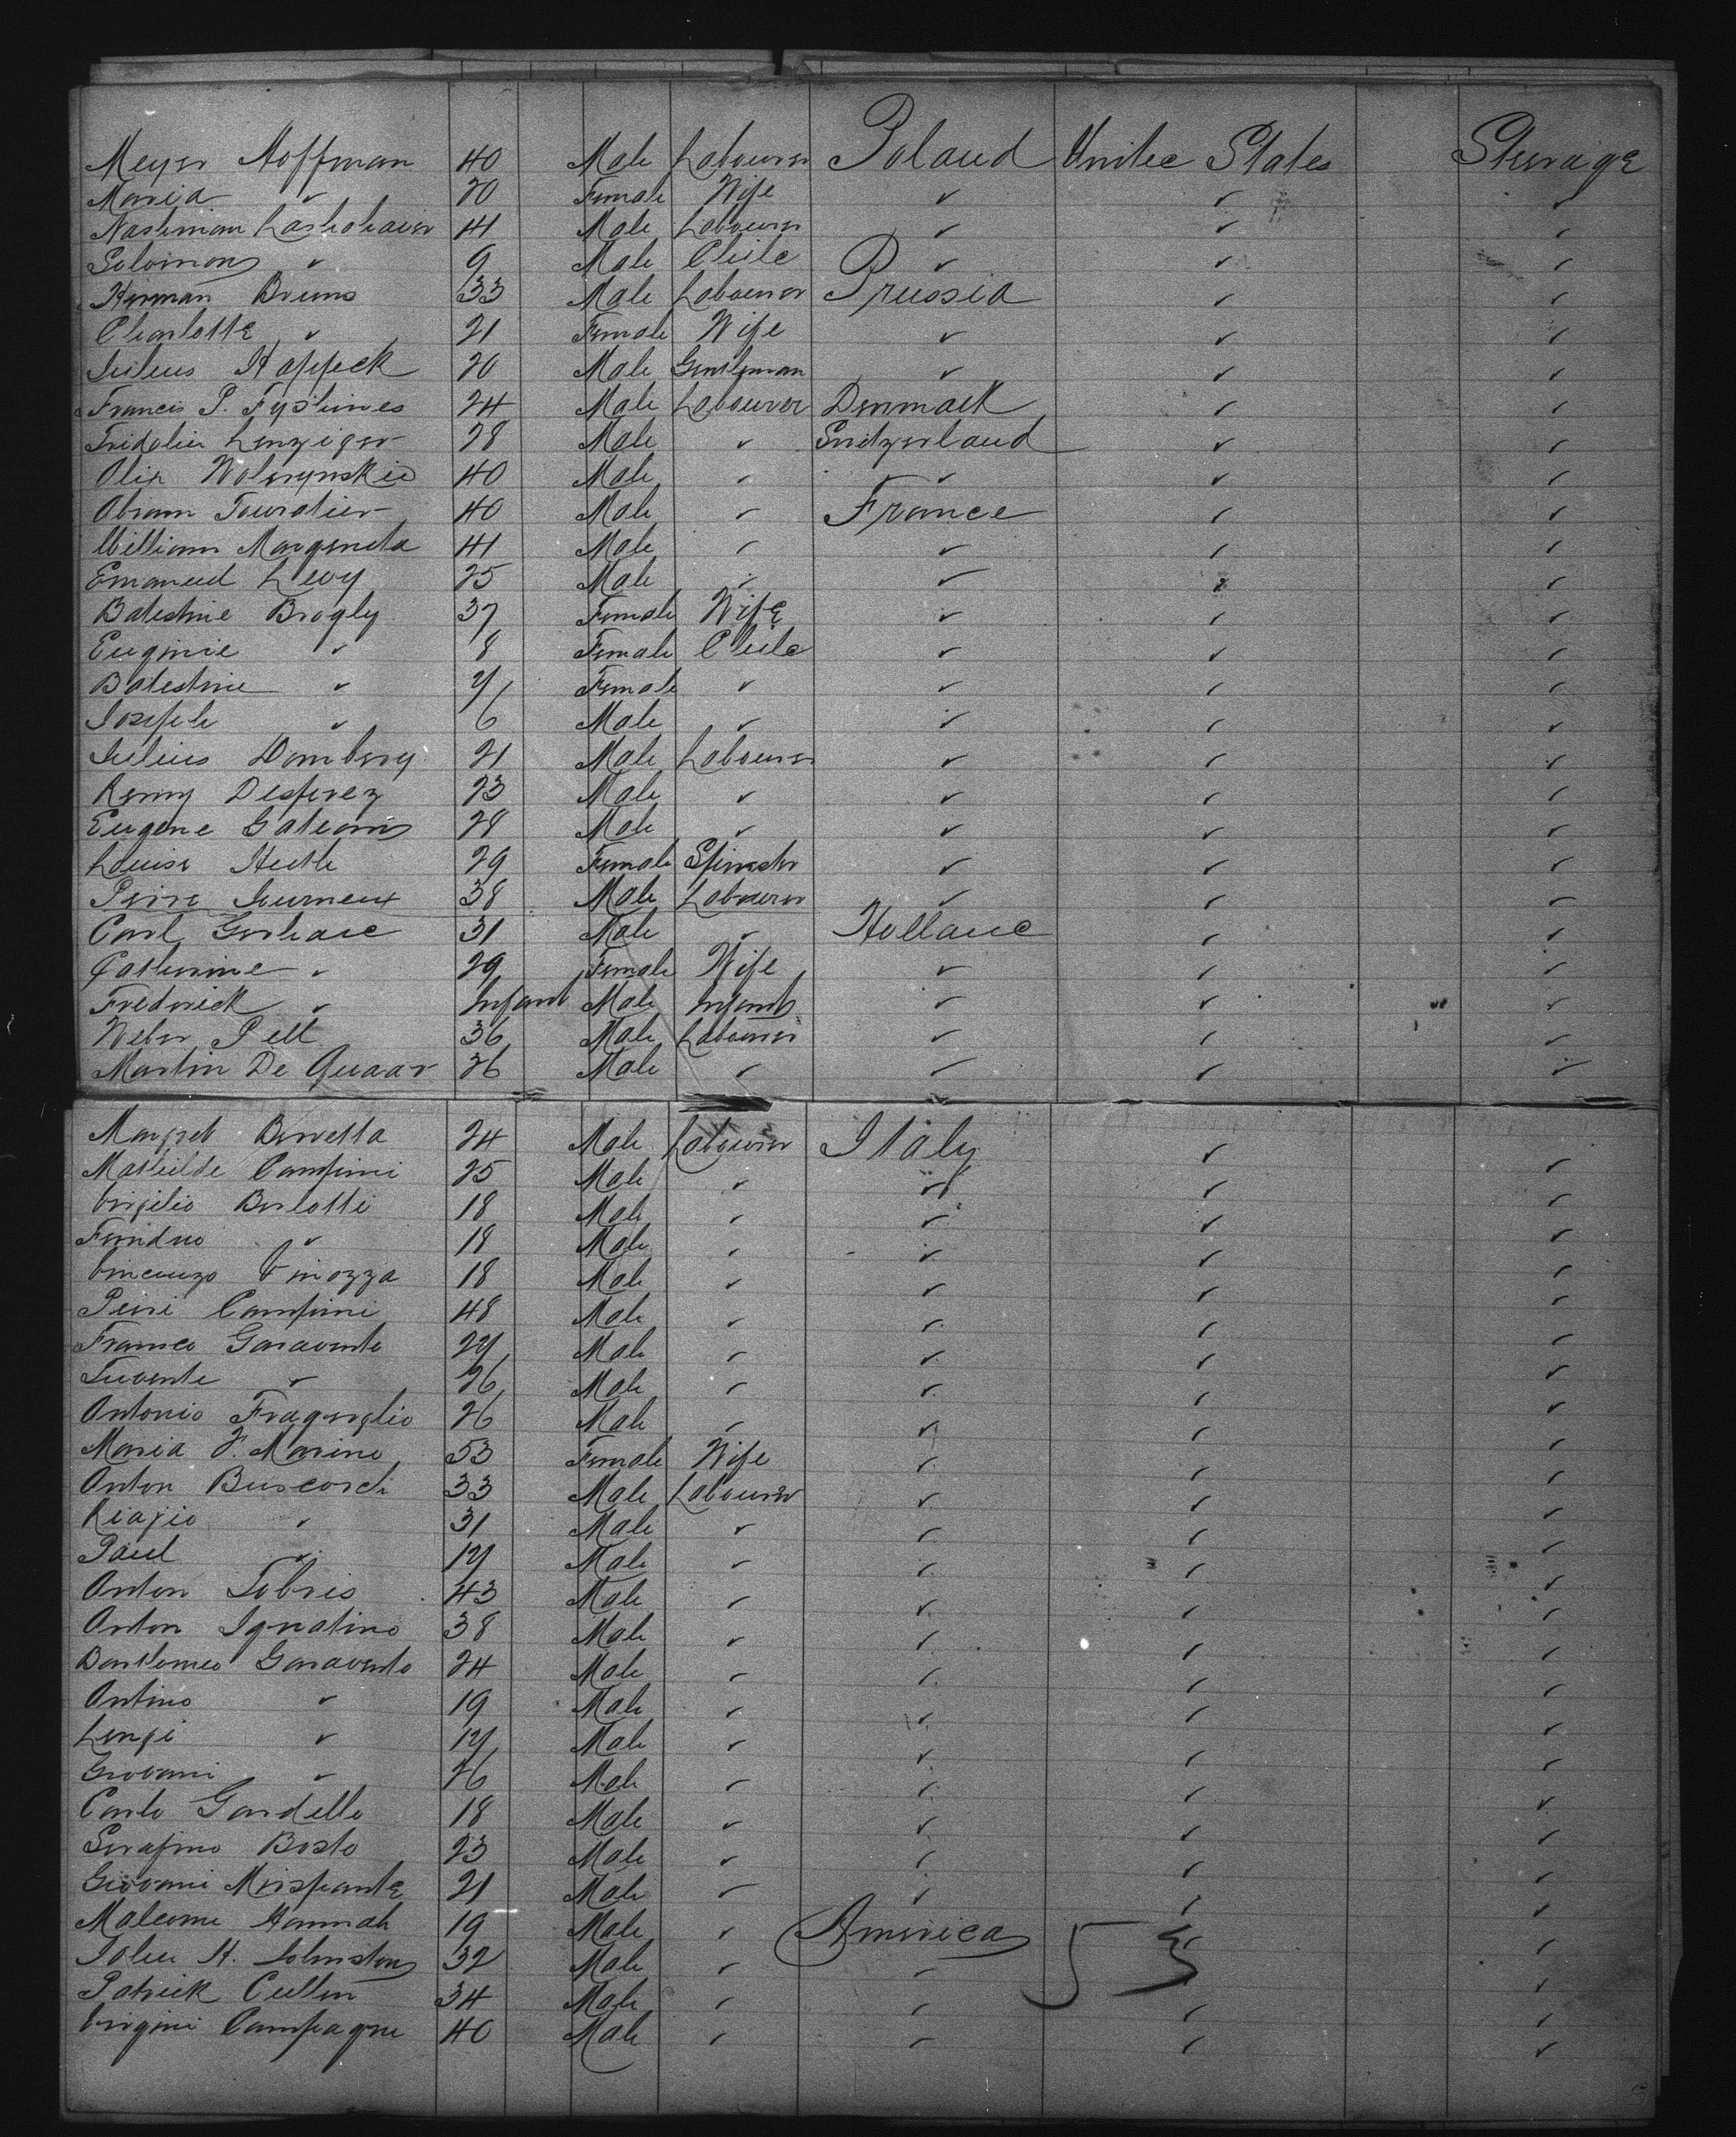 Meyer Hoffman 40 Male Labourer Poland United States Steerage
Maria " 20 Female Wife " " "
Nashman 41 Male Labourer " " "
Solomon " 9 Male Child " " "
Herman Bruns 33 Male Labourer Prussia " "
Charlotte " 21 Female Wife " " "
Julius 20 Male Gentleman " " "
Francis P. 24 Male Labourer Denmark " "
Fridolin Lenziger 28 Male " Switzerland " "
40 Male " " " "
Abram 40 Male " France " "
William Margenda 41 Male " " " "
Emanuel Levy 25 Male " " " "
Batestine Brogly 37 Female Wife " " "
Euginie " 8 Female Child " " "
Batestine " 7 Female " " " "
Joseph " 6 Male " " " "
Julius Domberg 21 Male Labourer " " "
Remy Desperez 23 Male " " " "
Eugene 28 Male " " " "
Louise 29 Female Spinster " " "
Peirre Journeux 38 Male Labourer " " "
Carl Gerhard 31 Male " Holland " "
Catherine " 29 Female Wife " " "
Frederick " Infant Male Infant " " "
Weber Pell 36 Male Labourer " " "
Martin De Quaar 26 Male " " " "
Margret Berretta 24 Male Labourer Italy " "
Mathilde Campini 25 Male " " " "
Virgilio Berlotti 18 Male " " " "
" 18 Male " " " "
Vincenzo Vinozza 18 Male " " " "
Peiri Campini 48 Male " " " "
Franseo Garavento 27 Male " " " "
" 26 Male " " " "
Antonio 26 Male " " " "
Maria F. Marino 53 Female Wife " " "
Anton 33 Male Labourer " " "
" 31 Male " " " "
Paul " 17 Male " " " "
Anton Tobris 43 Male " " " "
Anton Ignatino 38 Male " " " "
Bartlomeo Garavento 24 Male " " " "
Antino " 19 Male " " " "
" 17 Male " " " "
Giovani " 26 Male " " " "
Carlo Gardello 18 Male " " " "
Serafino Bosto 23 Male " " " "
Giovani 21 Male " " " "
Malcome Hannah 19 Male " America " "
John H. Johnston 32 Male " " 53 "
Patrick Cullen 34 Male " " " "
Virgini Campagne 40 Male " " " "